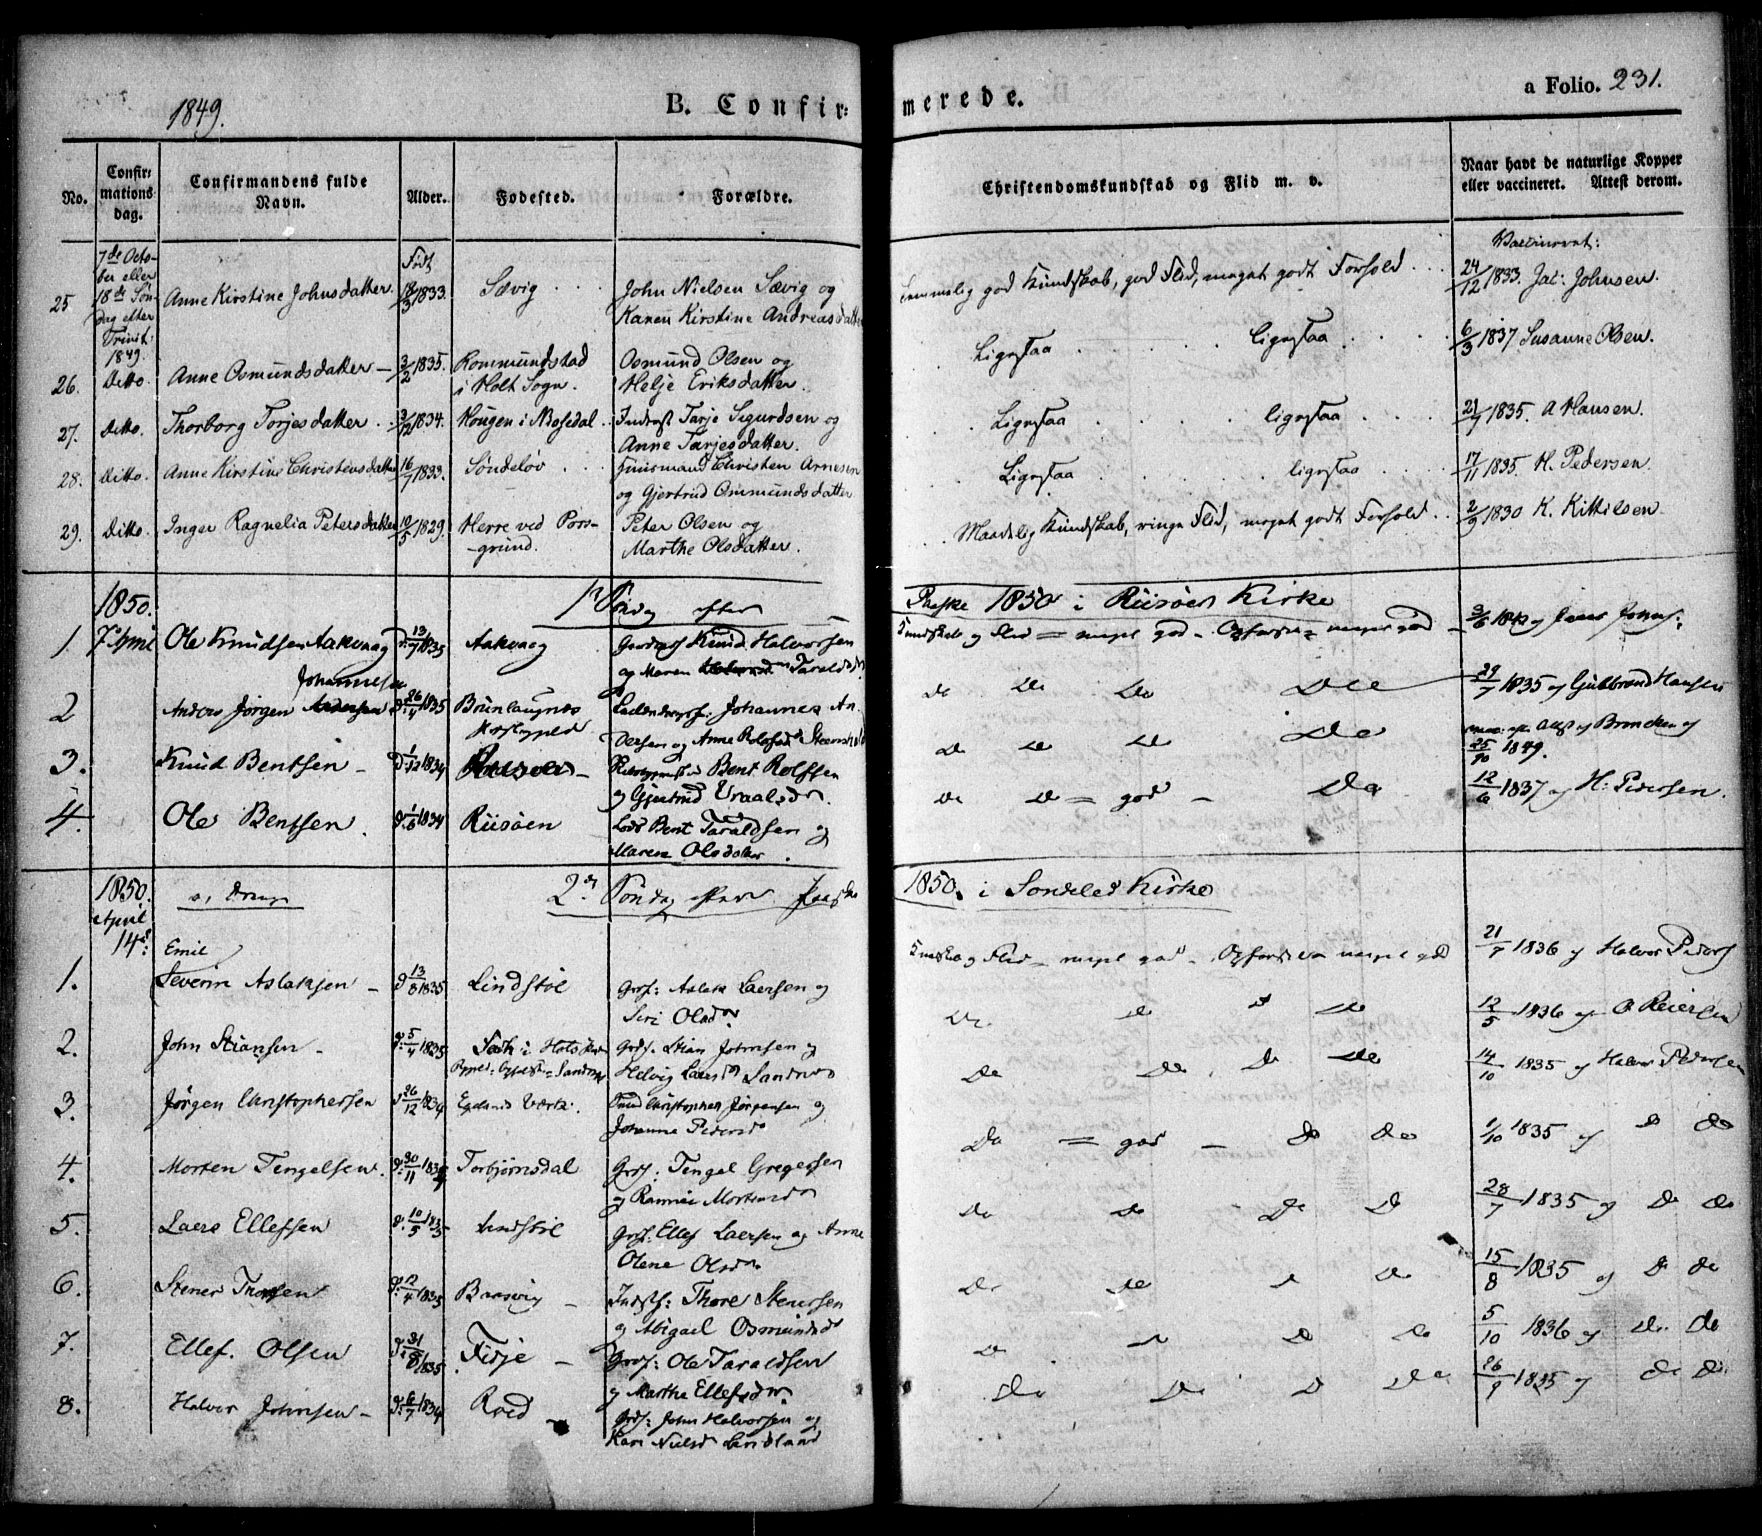 1849.
B. Confir:
merede.
a Folio. 231.
No.
Confir:
mations
dag.
Confirmandens fulde
Navn.
Alder.
Fødested.
Forældre.
Christendomskundskab og Flid m. v.
Naar havt de naturlige Kopper
eller vaccineret. Attest derom.
25
7de Octo-
ber eller
18de Søn-
dag efter
Trinit:
1849.
Anne Kirstine Johnsdatter.
Født
18/3 1833.
Sævig
John Nielsen Sævig og
Karen Kirstine Andreasdatter
Temmelig god Kundskab, god Flid, meget godt Forhold
Vaccineret:
24/12 1833. Jac: Johnsen.
26. Ditto. Anne Osmundsdatter 3/2 1835. Rommundstad
i Holt Sogn.
Osmund Olsen og
Helje Eriksdatter.
Ligesaa ligesaa 6/3 1837 Susanne Olsen.
27. Ditto. Thorborg Torjesdatter 3/12 1834. Hougen i
Indrst Tarje Sigurdsen og
Anne Tarjesdatter.
Ligesaa ligesaa 21/7 1835. A Hansen.
28. Ditto. Anne Kirstine Christensdatter 16/7 1833. Søndeløv
Huusmand Christen Arnesen
og Gjertrud Osmundsdatter
Ligesaa ligesaa 17/11 1835. H. Pedersen.
29. Ditto. Inger Ragnelia Petersdatter 10/5 1829. Herre ved Pors-
grund.
Peter Olsen og
Marthe Olsdatter.
Maadelig Kundskab, ringe Flid, meget godt Forhold 2/9 1830 K. Kittilsen
1850. 1ste Søndag efter Paaske 1850 i Riisøer Kirke
1 7 April Ole Knudsen Aakvaag d. 13/7 1835 Aakvaag
Knud Halvorsen
og Maren Taraldsdr
Kundskab og Flid meget god - Opførsel meget god
2 Anders Jørgen Johannesen d. 26/4 1835 Brunlaugnes
Johannes An-
dersen og Anne
Do Do Do Do 29/7 1835 af Gulbrand Hansen
3. Knud Bentsen d. 1/12 1834
Bent Rolfsen
og Gjertrud
Do Do Do Do
25/10 1849.
4. Ole Bentsen. d. 1/6 1834 Riisøen
Lods Bent Taraldsen og
Maren Olsdatter.
Do Do god Do 12/6 1837 af H: Pedersen.
1850. 2den Søndag efter Paaske 1850. i Søndeled Kirke
April
14de:
1. Emil
Severin Aslaksen d 13/8 1835 Lindstøl
Grdf: Aslak Laersen og
Siri Olsdr.
Kundskab og Flid meget god - Opførsel meget god 21/7 1836 af Halvor Peders
2. John Stiansen d: 5/4 1835
Grdf. Stian Johnsen og
Helvig Laersdr Sandnes
Do Do Do Do 12/5 1836 af O Reiersen
3. Jørgen Christophersen d 26/12 1834 Egelands Værk.
Christopher Jørgensen og
Johanne Pedersdr
Do Do Do Do 14/10 1835 af Halvor Pedersen
4. Morten Tengelsen. d: 30/11 Torbjørnsdal
Grdf. Tengel Gregersen
og
Do god Do Do 1/10 1835 af Do Do
5. Laers Ellefsen d. 10/5 1835 Lindstøl
Grdf: Ellef Laersen og Anne
Olene Olsdr.
Do Do Do Do 28/7 1835 af Do Do
6. Stener Thorsen d: 12/4 1835 Baasvig
Indstf: Thore Stenersen
og Abigael Osmundsdr
Do Do Do Do 15/8 1835 af Do Do
7. Ellef. Olsen d: 31/8 1835 Fidje
Grdf: Ole Taraldsen
og Marthe Ellefsdr
Do Do Do Do 5/10 1836 af Do Do
8. Halvor Johnsen d: 6/7 1834 Røed
Grdf: John Halvorsen og
Kari Nielsd Lindland
Do Do Do Do 26/9 1835 af Do Do